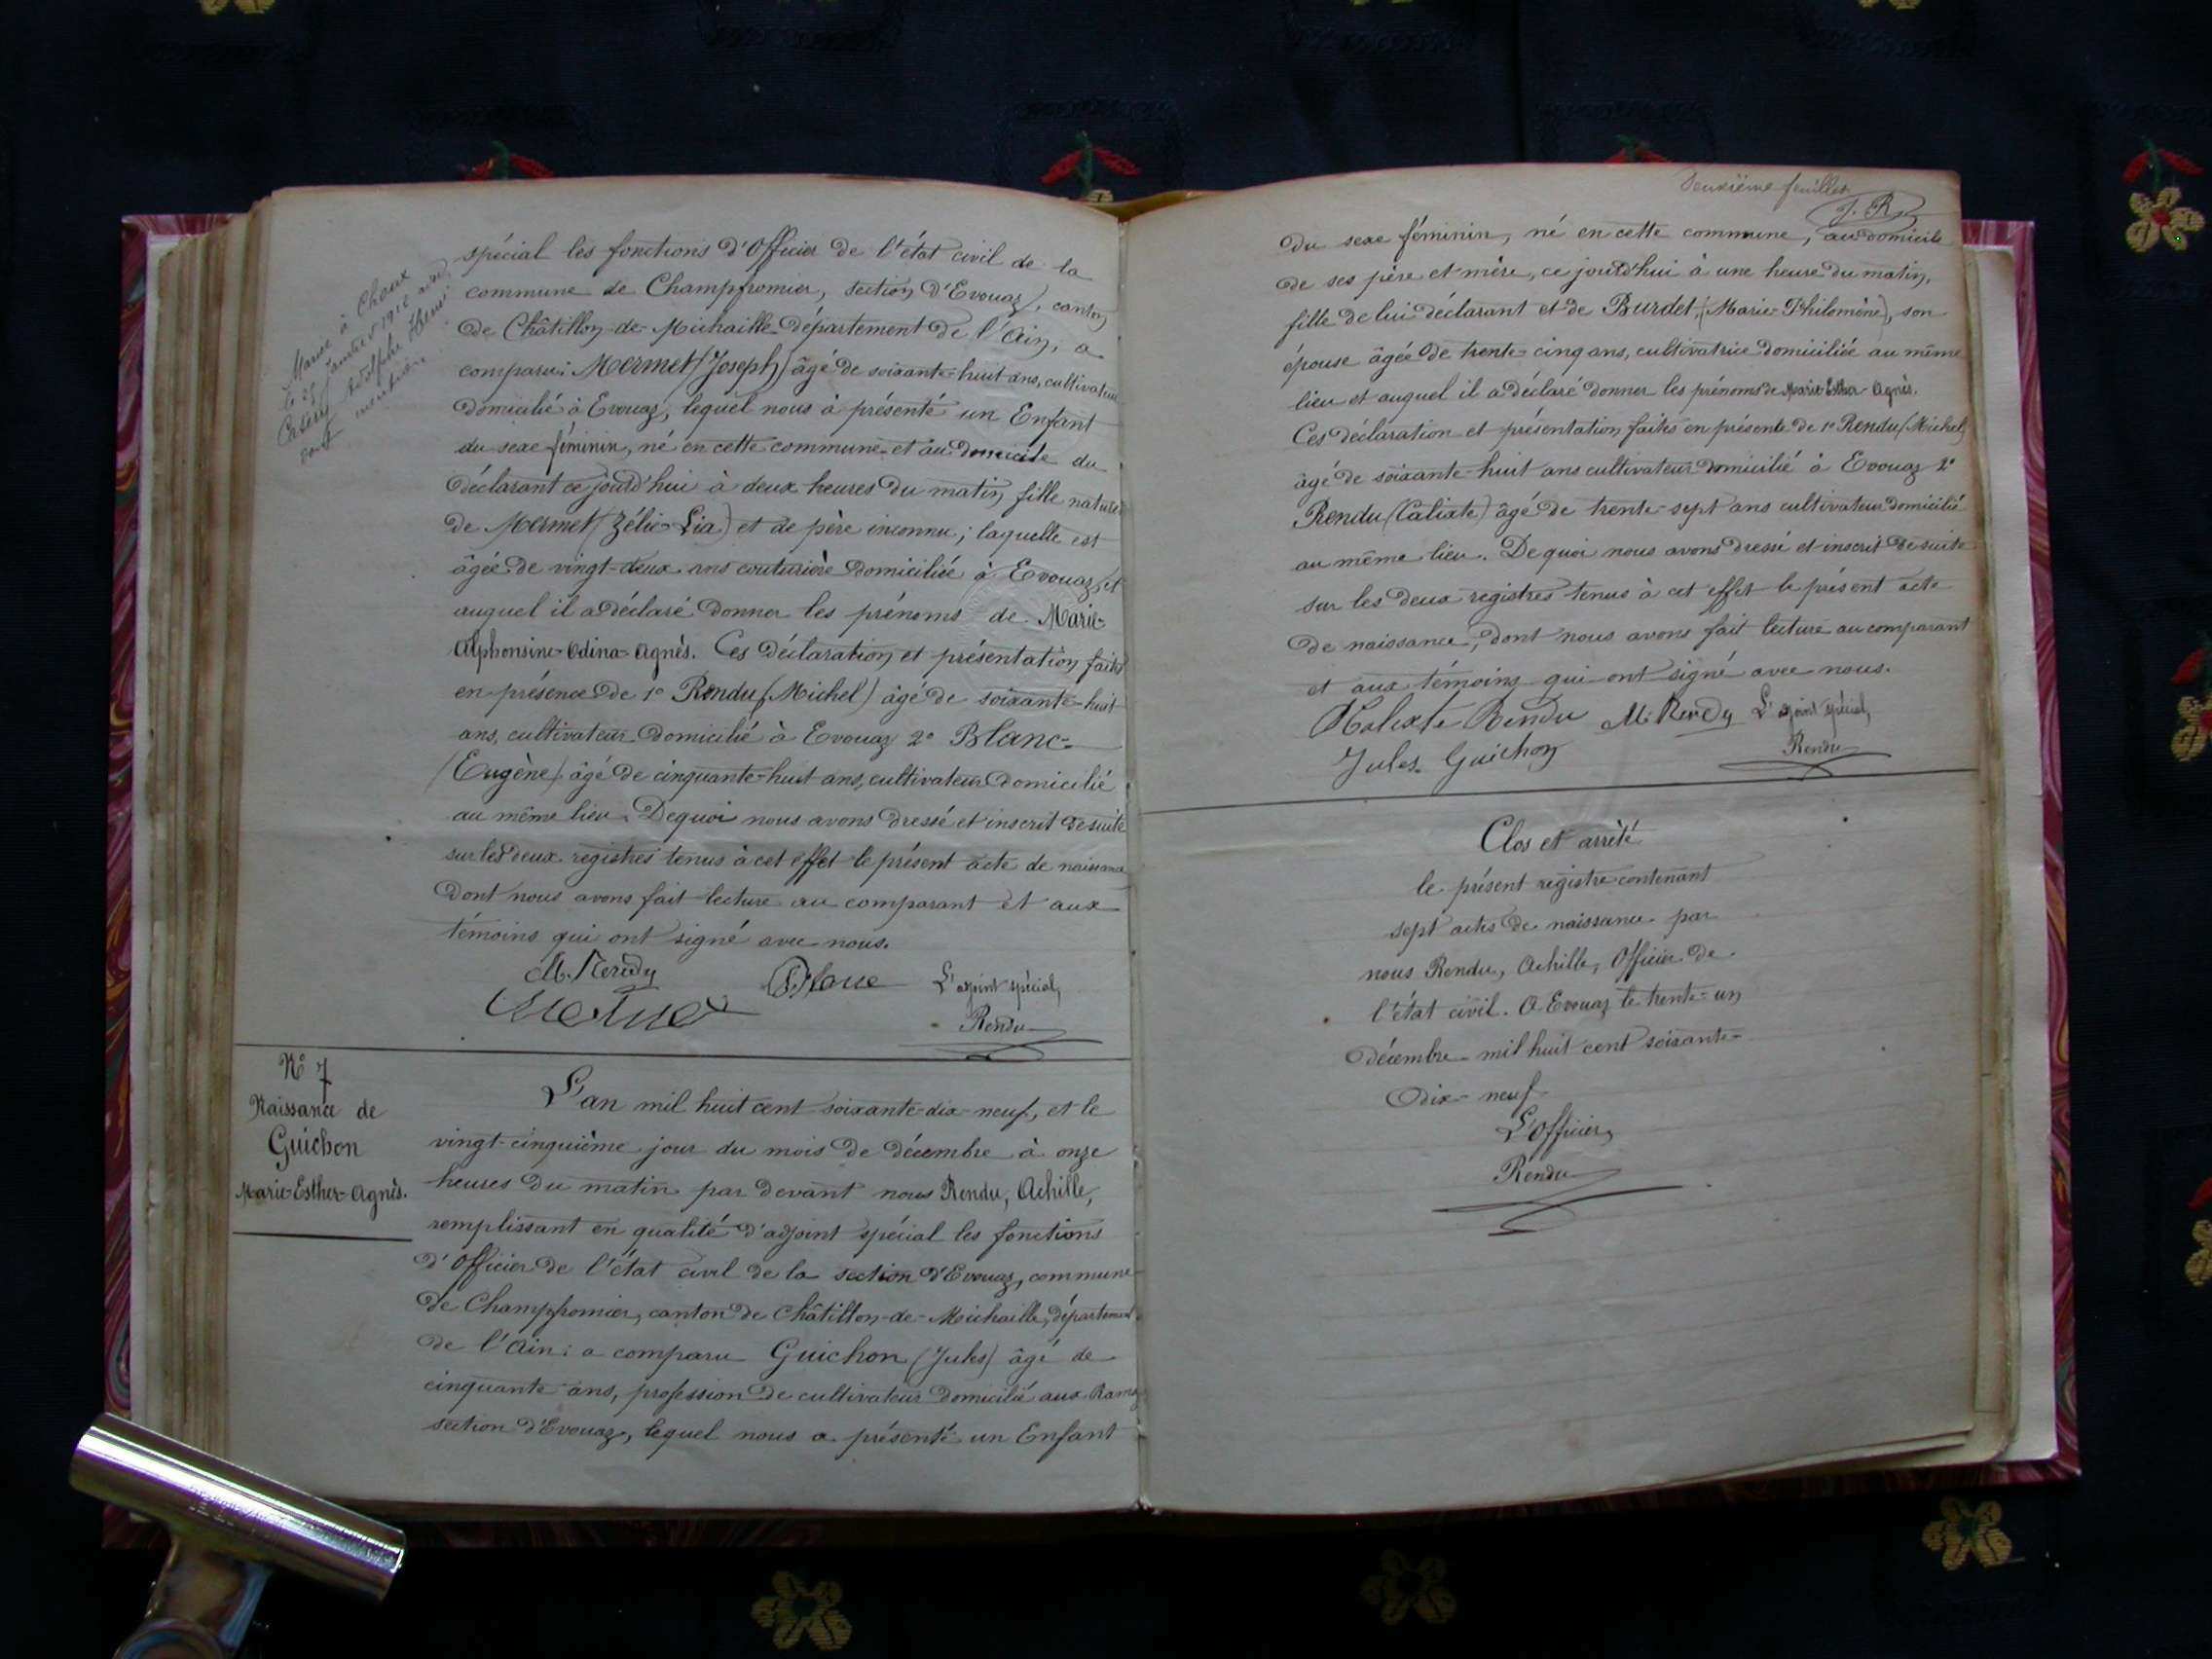 Marié à Choux
le 25 janvier 1912 avec
Casery Adolphe Henri
dont mention
spécial les fonctions d'Officier de l'état civil de la
commune de Champfromier, section d'Evouaz, canton
de Châtillon-de-Michaille département de l'Ain, a
comparu: Mermet (Joseph) âgé de soixante-huit ans, cultivateur
domicilié à Evouaz, lequel nous à présenté un Enfant
du sexe féminin, né en cette commune et au domicile du
déclarant ce jourd'hui à deux heures du matin, fille naturel
de Mermet (Zélie-Lia) et de père inconnu; laquelle est
âgée de vingt-deux ans couturière domiciliée à Evouaz, et
auquel il a déclaré donner les prénoms de Marie-
Alphonsine-Odina-Agnès. Ces déclaration et présentation faites
en présence de 1° Rendu (Michel) âgé de soixante-huit
ans, cultivateur domicilié à Evouaz 2° Blanc-
(Eugène) âgé de cinquante-huit ans, cultivateur domicilié
au même lieu. De quoi nous avons dressé et inscrit de suite
sur les deux registres tenus à cet effet le présent acte de naissance
dont nous avons fait lecture au comparant et aux
témoins qui ont signé avec nous.
M. Rendu Blanc L'adjoint spécial,
Mermet Rendu
N° 7
Naissance de
Guichon
Marie-Esther-Agnès.
L'an mil huit cent soixante-dix-neuf, et le
vingt-cinquième jour du mois de décembre à onze
heures du matin par devant nous Rendu, Achille,
remplissant en qualité d'adjoint spécial les fonctions
d'Officier de l'état civil de la section d'Evouaz, commune
de Champfromier, canton de Châtillon-de-Michaille, département
de l'Ain: a comparu Guichon (Jules) âgé de
cinquante ans, profession de cultivateur domicilié aux Ramaz
section d'Evouaz, lequel nous a présenté un Enfant
Deuxième feuillet
J. R.
du sexe féminin, né en cette commune, au domicile
de ses père et mère, ce jourd'hui à une heure du matin,
fille de lui déclarant et de Burdet (Marie-Philomène), son
épouse âgée de trente-cinq ans, cultivatrice domiciliée au même
lieu et auquel il a déclaré donner les prénoms de Marie-Esther-Agnès.
Ces déclaration et présentation faites en présente de 1° Rendu (Michel)
âgé de soixante-huit ans cultivateur domicilié à Evouaz 2°
Rendu (Calixte) âgé de trente-sept ans cultivateur domicilié
au même lieu. De quoi nous avons dressé et inscrit de suite
sur les deux registres tenus à cet effet le présent acte
de naissance, dont nous avons fait lecture au comparant
et aux témoins qui ont signé avec nous.
Kalixte Rendu M. Rendu L'adjoint spécial,
Jules Guichon Rendu
Clos et arrêté
le présent registre contenant
sept actes de naissance par
nous Rendu, Achille, Officier de
l'état civil. A Evouaz le trente-un
décembre mil huit cent soixante-
dix-neuf
L'Officier,
Rendu